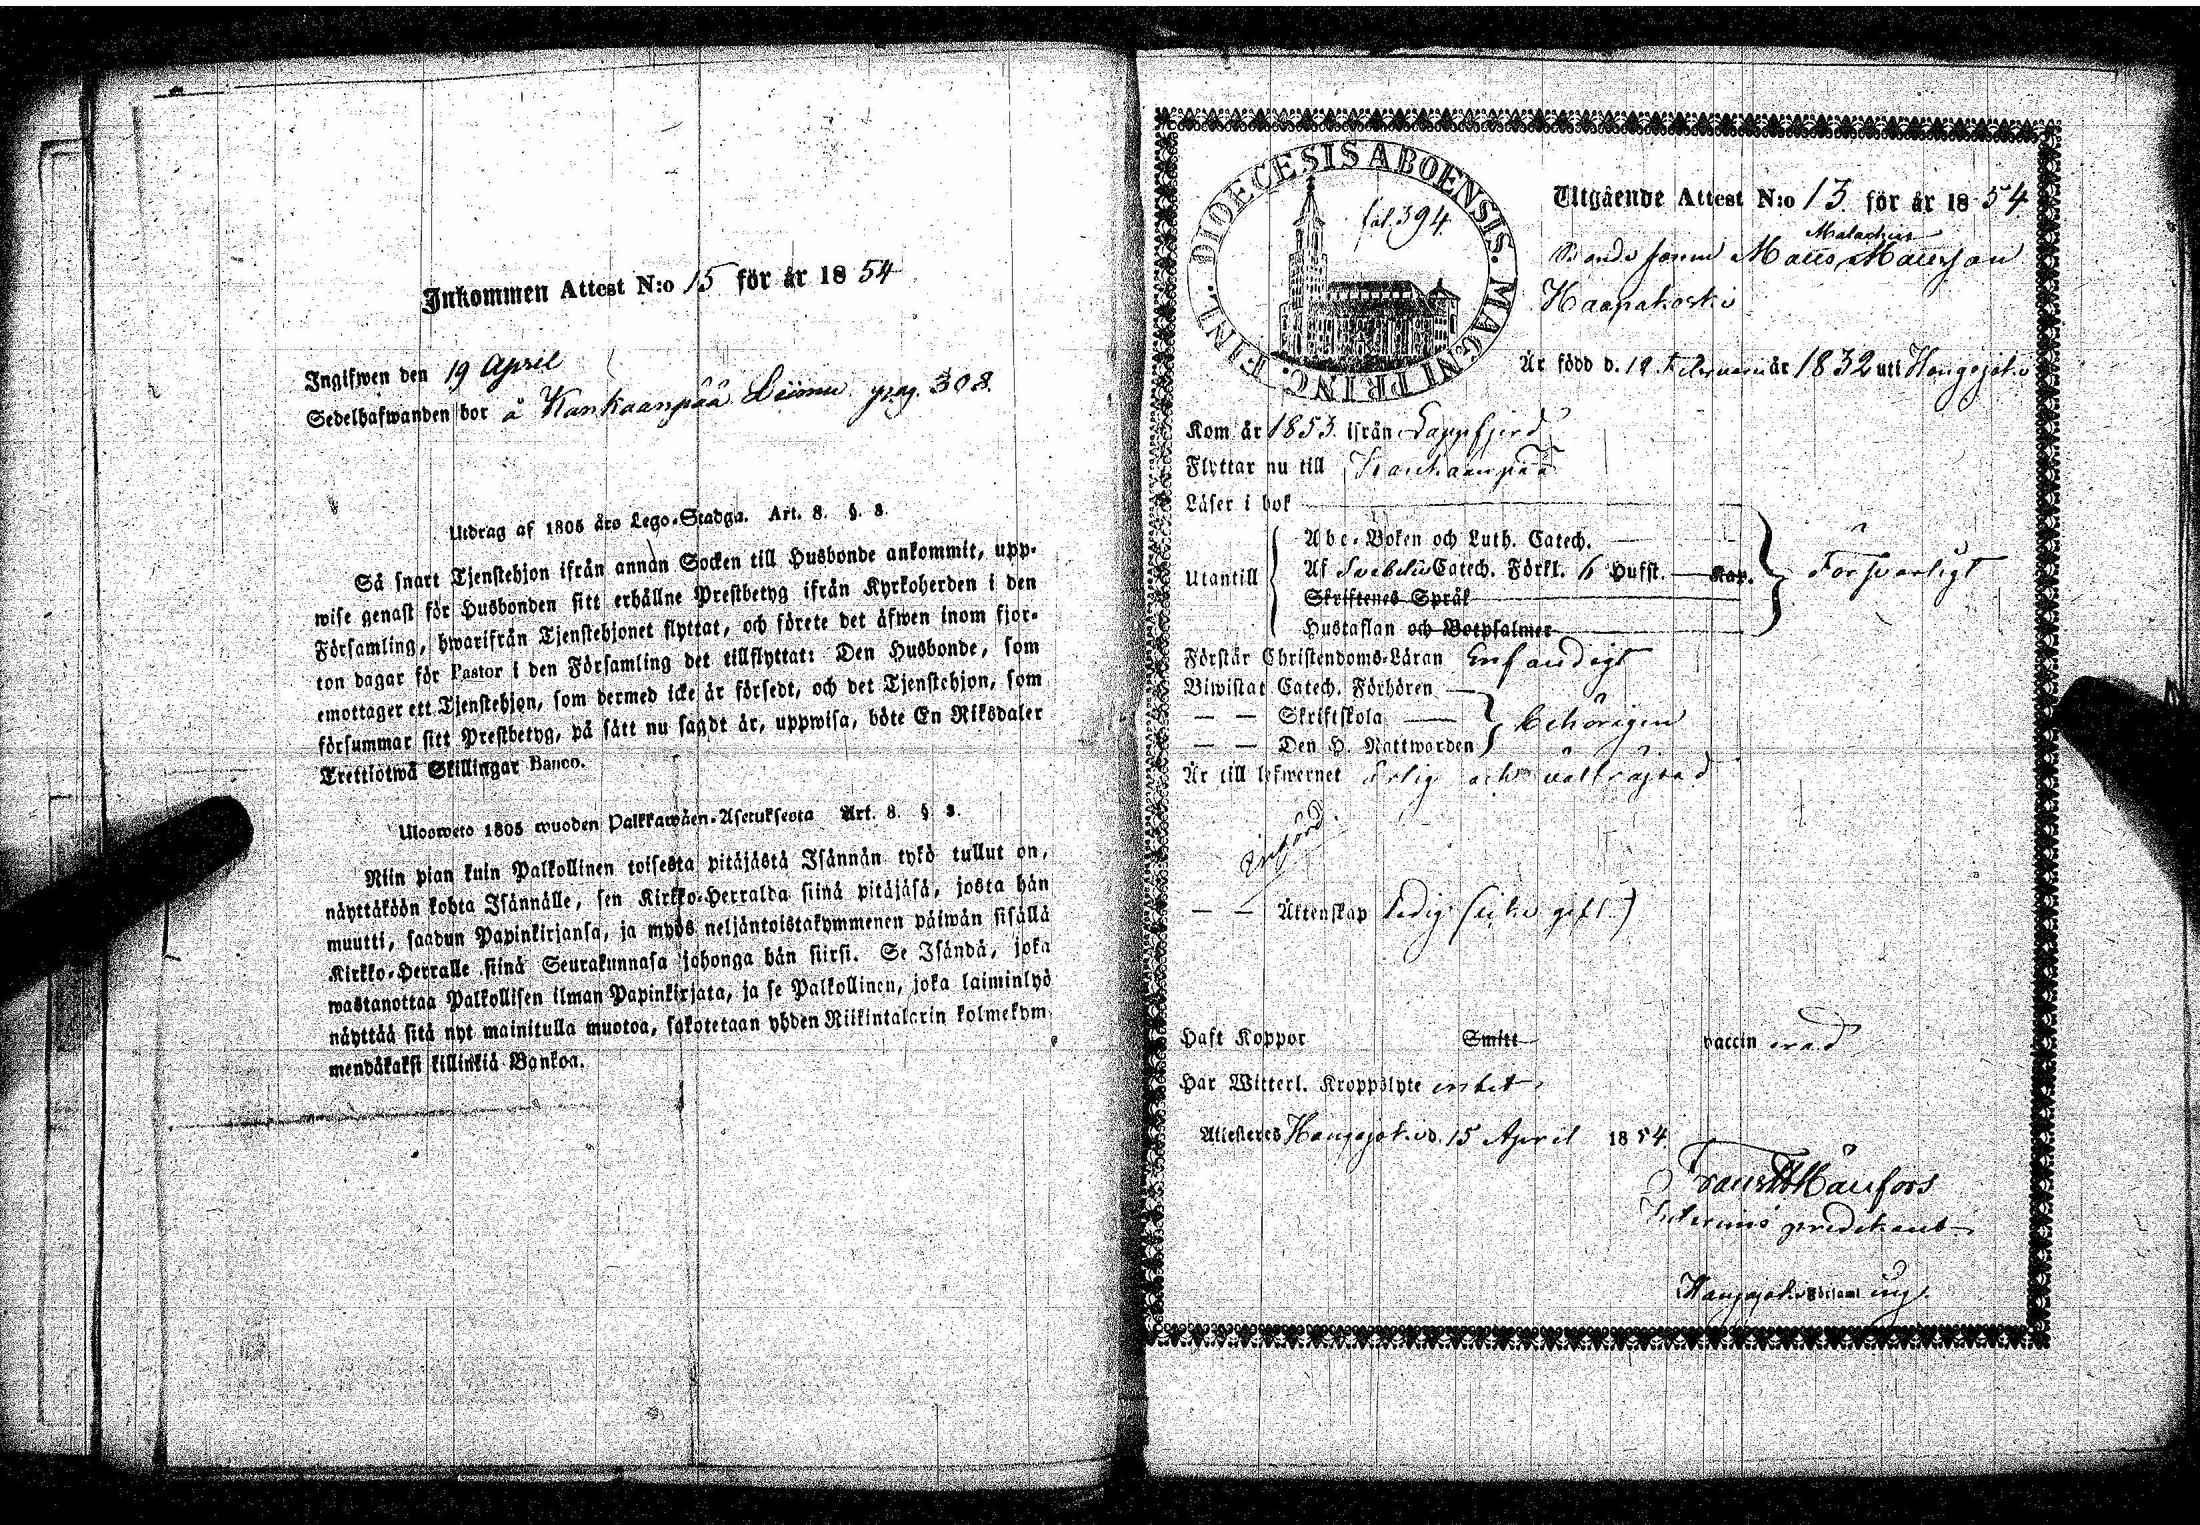 Inkommen Attest N:o 15 för år 1854
Ingifwen den 19 April
Sedelhafwanden bor å Kankaanpää Leimu pag. 308.
Utdrag af 1805 års Lego-Stadga. Art. 8. §. 8.
Så snart Tjenstehjon ifrån annan Socken till Husbonde ankommit, upp-
wise genast för Husbonden sitt erhållne Prestbetyg ifrån Kyrkoherden i den
Församling, hwarifrån Tjenstehjonet flyttat, och förete det äfwen inom fjor-
ton dagar för Pastor i den Församling det tillflyttat: Den Husbonde, som
emottager ett Tjenstehjon, som dermed icke är försedt, och det Tjenstehjon, som
försummar sitt Prestbetyg, på sätt nu sagdt är, uppwisa, böte En Riksdaler
Trettiotwå Skillingar Banco.
Ulosweto 1805 wuoden Palkkawäen-Asetuksesta Art. 8. § 8.
Niin pian kuin Palkollinen toisesta pitäjästä Isännän tykö tullut on,
näyttäköön kohta Isännälle, sen Kirkko-Herralda siinä pitäjäsä, josta hän
muutti, saadun Papinkirjansa, ja myös neljäntoistakymmenen päiwän sisällä
Kirkko-Herralle siinä Seurakunnasa johonga hän siirsi. Se Isändä, joka
wastanottaa Palkollisen ilman Papinkirjata, ja se Palkollinen, joka laiminlyö
näyttää sitä nyt mainitulla muotoa, sakotetaan yhden Riikintalarin kolmekym-
mendäkaksi killinkiä Bankoa.
DIOECESIS ABOENSIS. MAGNI PRINC. FINL.
fol. 394
Utgående Attest N:o 13. för år 1854
Malachias
Bonde sonen Matts Mattsson
Haapakoski
Är född d. 19 Februari år 1832 uti Hongojoki
Kom år 1853 ifrån Lappfjerd
Flyttar nu till Kankaanpää
Läser i bok
Utantill
Abc-Boken och Luth. Catech.
Af Svebelii Catech. Förkl. 6 Hufst. Kap.
Skriftenes Språk
Hustaflan och Botpsalmer
Försvarligt
Förstår Christendoms-Läran Enfaldigt
Biwistat Catech. Förhören
— — Skriftskola
— — Den H. Nattwarden
behörigen
Är till lefwernet ärlig och välfräjdad
— — Äktenskap ledig (icke gift)
Haft Koppor Smitt vaccinerad
Har Witterl. Kroppslyte intet
Attesteres Hongojoki d. 15 April 1854.
Interims predikant
Hongojoki Församlung.